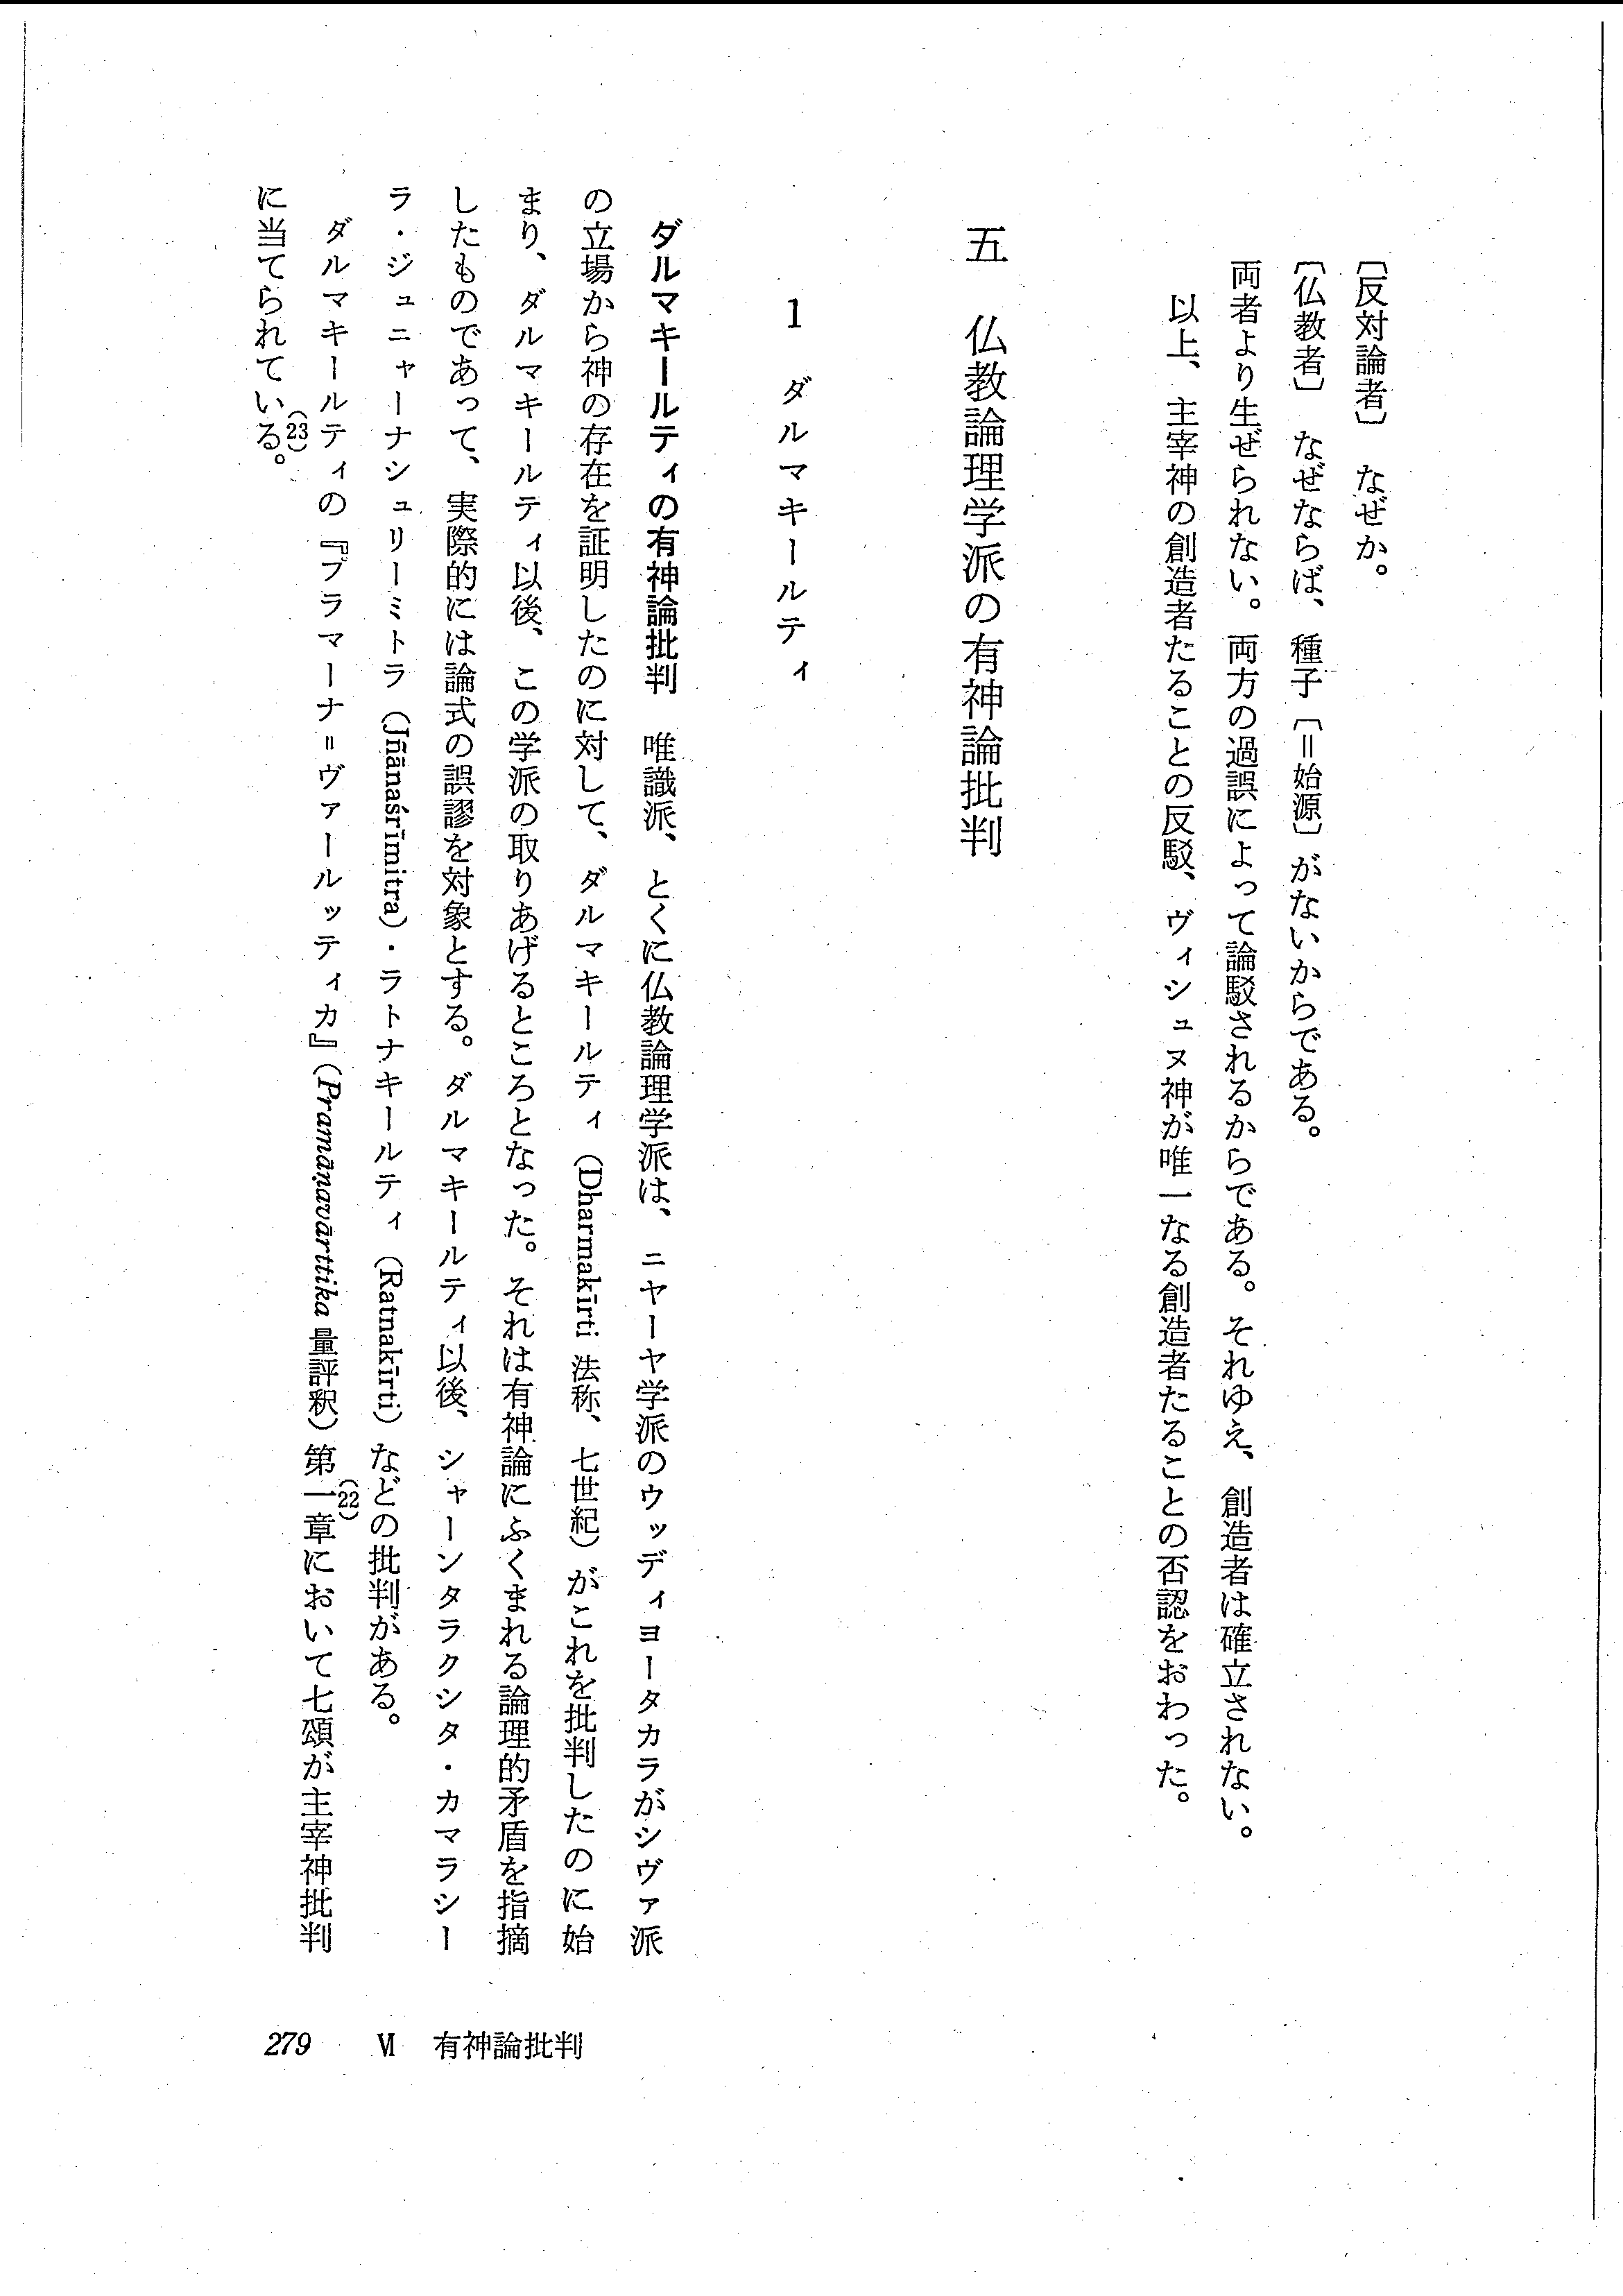 〔反対論者〕　なぜか。
〔仏教者〕　なぜならば、種子〔＝始源〕がないからである。
両者より生ぜられない。両方の過誤によって論駁されるからである。それゆえ、創造者は確立されない。
以上、主宰神の創造者たることの反駁、ヴィシュヌ神が唯一なる創造者たることの否認をおわった。
五　仏教論理学派の有神論批判
1　ダルマキールティ
ダルマキールティの有神論批判　唯識派、とくに仏教論理学派は、ニヤーヤ学派のウッディヨータカラがシヴァ派
の立場から神の存在を証明したのに対して、ダルマキールティ（Dharmakīrti 法称、七世紀）がこれを批判したのに始
まり、ダルマキールティ以後、この学派の取りあげるところとなった。それは有神論にふくまれる論理的矛盾を指摘
したものであって、実際的には論式の誤謬を対象とする。ダルマキールティ以後、シャーンタラクシタ・カマラシー
ラ・ジュニャーナシュリーミトラ（Jñānaśrīmitra）・ラトナキールティ（Ratnakīrti）などの批判がある。
ダルマキールティの『プラマーナ＝ヴァールッティカ』（Pramāṇavārttika 量評釈）第一章(22)において七頌が主宰神批判
に当てられている(23)。
279　Ⅵ　有神論批判